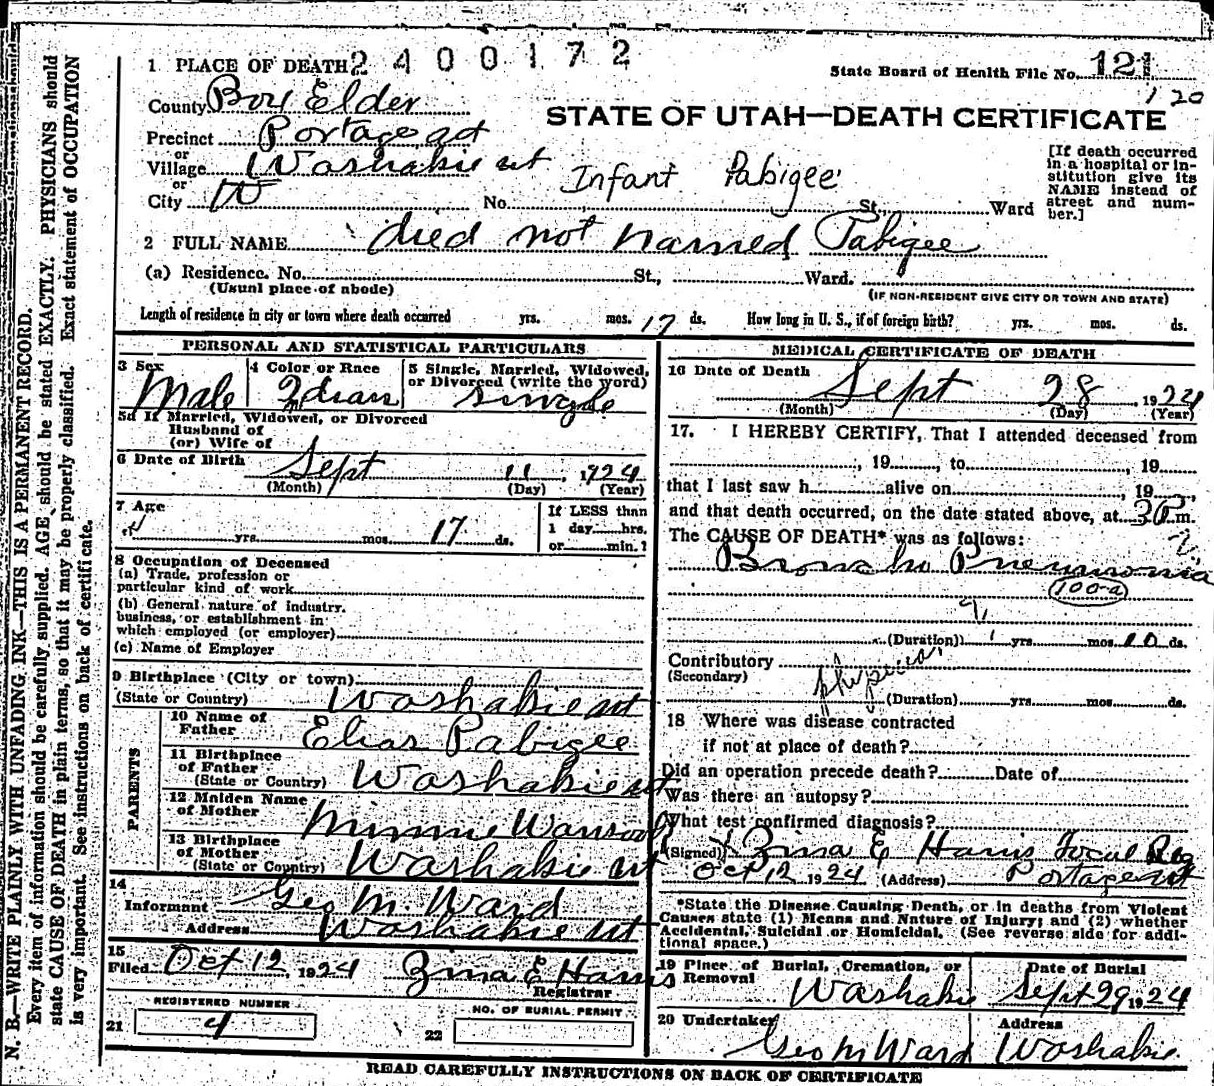 N. B.—WRITE PLAINLY WITH UNFADING INK—THIS IS A PERMANENT RECORD.
Every item of information should be carefully supplied. AGE should be stated EXACTLY. PHYSICIANS should
state CAUSE OF DEATH in plain terms, so that it may be properly classified. Exact statement of OCCUPATION
is very important. See instructions on back of certificate.
1 PLACE OF DEATH 2400172
State Board of Health File No. 121
120
County Box Elder
STATE OF UTAH—DEATH CERTIFICATE
Precinct Portage ut
or
Village Washakie ut
or
City
Infant Pabigee
No. St., Ward
[If death occurred
in a hospital or in-
stitution give its
NAME instead of
street and num-
ber.]
2 FULL NAME died not named Pabigee
(a) Residence. No. St., Ward.
(Usual place of abode)
(IF NON-RESIDENT GIVE CITY OR TOWN AND STATE)
Length of residence in city or town where death occurred yrs. mos. 17 ds. How long in U. S., if of foreign birth? yrs. mos. ds.
PERSONAL AND STATISTICAL PARTICULARS
3 Sex Male
4 Color or Race
5 Single, Married, Widowed,
or Divorced (write the word)
Single
5a If Married, Widowed, or Divorced
Husband of
(or) Wife of
6 Date of Birth Sept 11, 1924
(Month) (Day) (Year)
7 Age
yrs. mos. 17 ds.
If LESS than
1 day hrs.
or min.?
8 Occupation of Deceased
(a) Trade, profession or
particular kind of work
(b) General nature of industry,
business, or establishment in
which employed (or employer)
(c) Name of Employer
9 Birthplace (City or town)
(State or Country) Washakie ut
PARENTS
10 Name of
Father Elias Pabigee
11 Birthplace
of Father
(State or Country) Washakie ut
12 Maiden Name
of Mother Minnie
13 Birthplace
of Mother
(State or Country) Washakie ut
14
Informant Geo M. Ward
Address Washakie ut
15
Filed Oct 12, 1924 Zina E Harris
Registrar
REGISTERED NUMBER
21 4
NO. OF BURIAL PERMIT
22
MEDICAL CERTIFICATE OF DEATH
16 Date of Death
Sept 28, 1924
(Month) (Day) (Year)
17. I HEREBY CERTIFY, That I attended deceased from
, 19 , to , 19
that I last saw h alive on , 19 ,
and that death occurred, on the date stated above, at 3 P m.
The CAUSE OF DEATH* was as follows:
Broncho Pneumonia
100-a
(Duration) yrs. mos. 10 ds.
Contributory
(Secondary)
(Duration) yrs. mos. ds.
18 Where was disease contracted
if not at place of death?
Did an operation precede death? Date of
Was there an autopsy?
What test confirmed diagnosis?
(Signed) Zina E Harris Local Reg
Oct 12 1924 (Address) Portage ut
*State the Disease Causing Death, or in deaths from Violent
Causes state (1) Means and Nature of Injury; and (2) whether
Accidental, Suicidal or Homicidal. (See reverse side for addi-
tional space.)
19 Place of Burial, Cremation, or
Removal
Washakie
Date of Burial
Sept 29 1924
20 Undertaker
Geo M Ward
Address
Washakie
READ CAREFULLY INSTRUCTIONS ON BACK OF CERTIFICATE